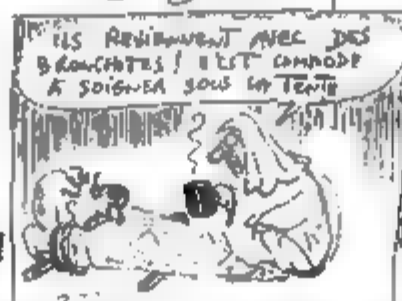 ILS REVIENNENT AVEC DES
BRONCHITES! C'EST COMMODE
A SOIGNER SOUS LA TENTE